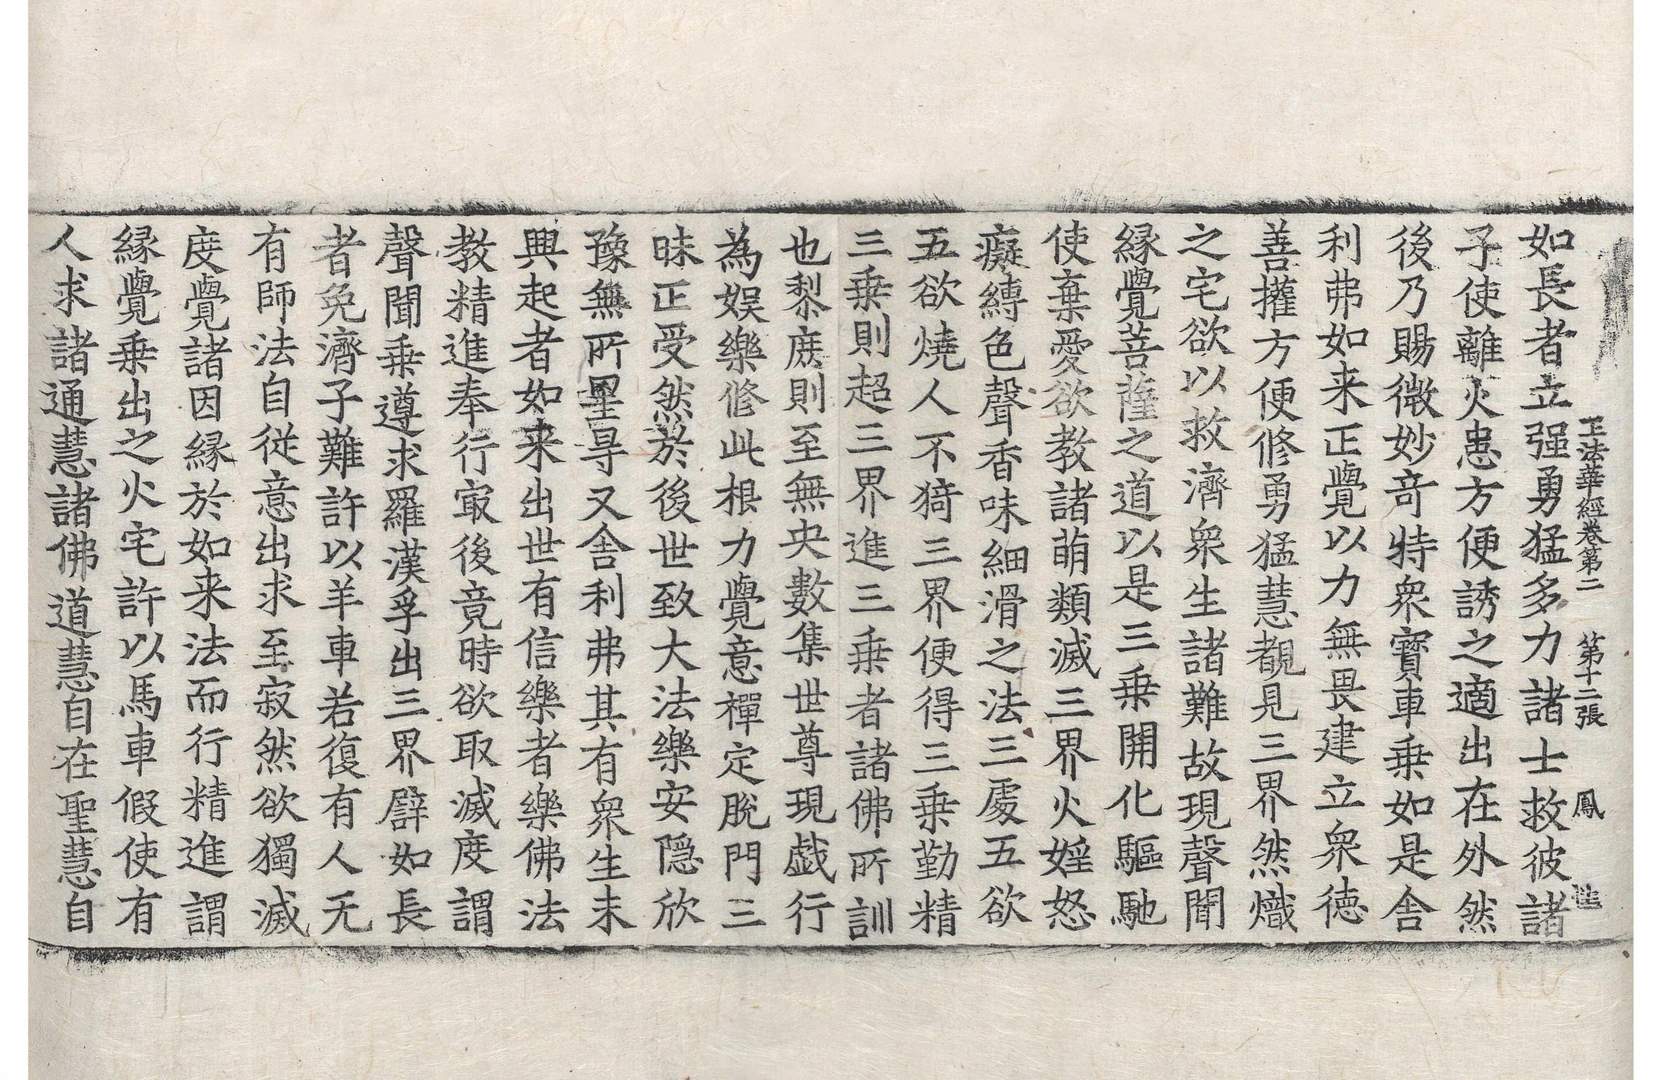 正法華經卷第二　第十二張　鳳
如長者立强勇猛多力諸士救彼諸
子使離火患方便誘之適出在外然
後乃賜微妙奇特衆寶車乗如是舎
利弗如来正覺以力無畏建立衆徳
善攉方便修勇猛慧覩見三界然熾
之宅欲以救濟衆生諸難故現聲聞
縁覺菩薩之道以是三乗開化驅馳
使棄愛欲教諸萌類滅三界火婬怒
癡縛色聲香味細滑之法三處五欲
五欲燒人不猗三界便得三乗勤精
三乗則超三界進三乗者諸佛所訓
也黎庶則至無央數集世尊現戯行
為娱樂修此根力覺意禪定脫門三
昧正受然於後世致大法樂安隐欣
豫無所罣㝵又舎利弗其有衆生未
興起者如来出世有信樂者樂佛法
教精進奉行㝡後竟時欲取滅度謂
聲聞乗遵求羅漢孚出三界譬如長
者免濟子難許以羊車若復有人无
有師法自從意出求至寂然欲獨滅
度覺諸因縁於如来法而行精進謂
縁覺乗出之火宅許以馬車假使有
人求諸通慧諸佛道慧自在聖慧自